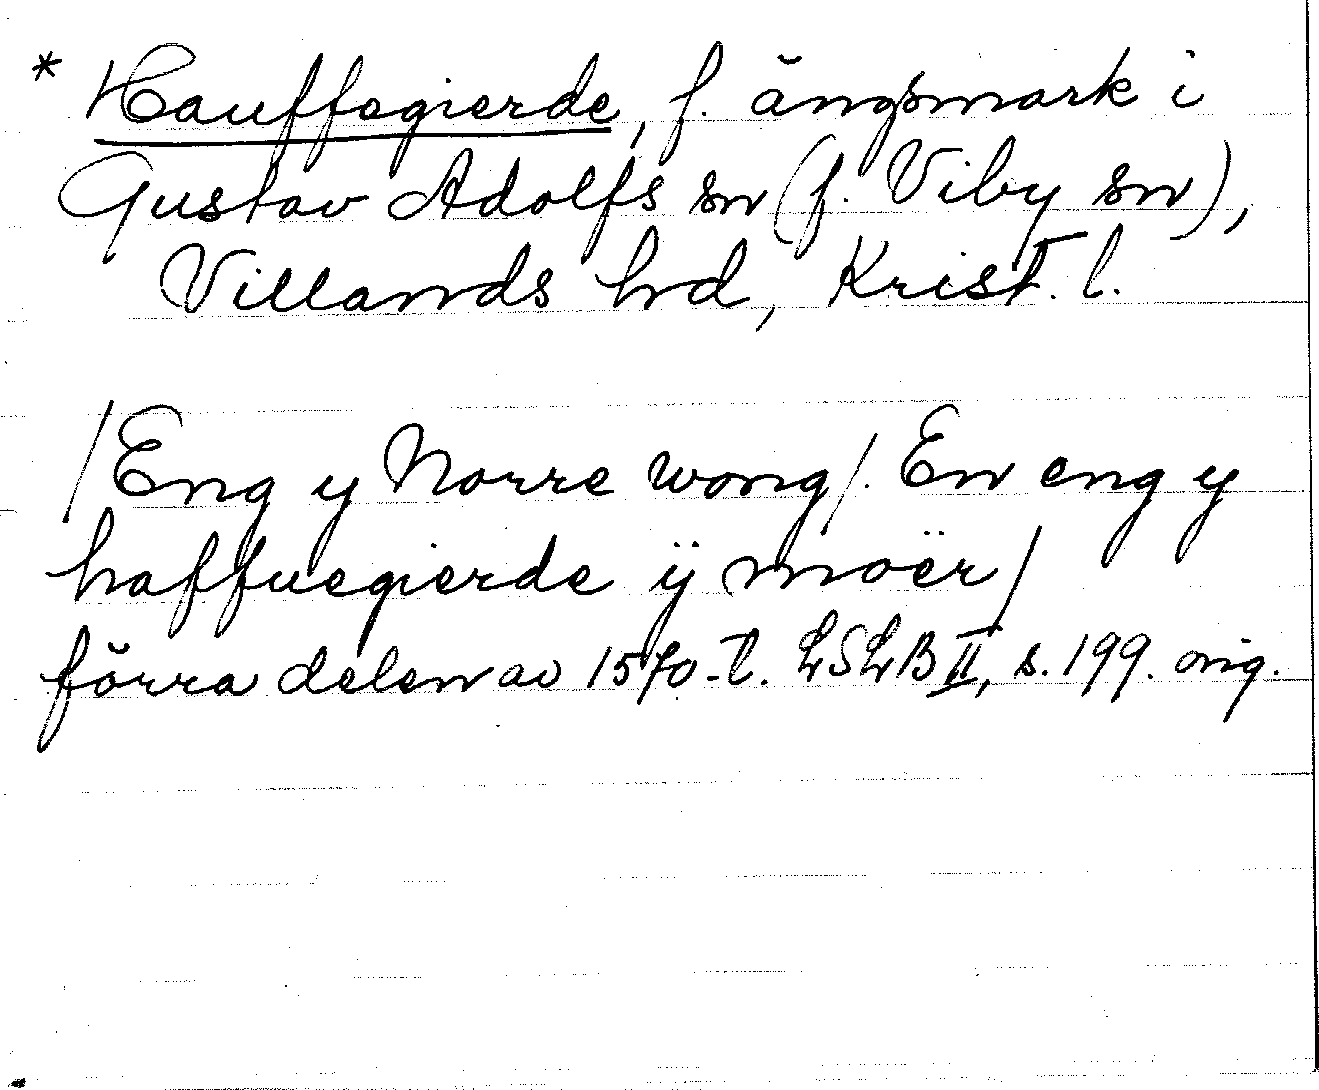 * Hauffagierde, f. ängsmark i
Gustav Adolfs sn (f. Viby sn),
Villands hd, Krist. l.
/Eng y Norre wong/. En eng y
haffuegierde ÿ moër/
förra delen av 1570-t. LSLB II, s. 199. orig.